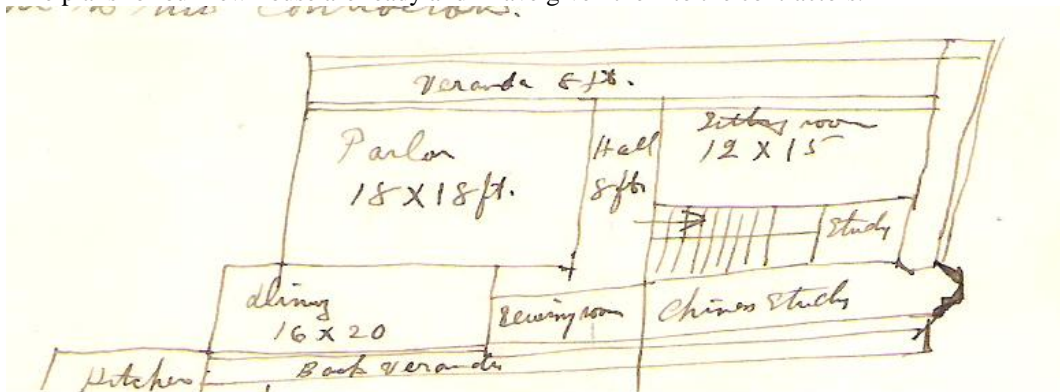 Veranda 8 ft.
Parlor
18 X 18 ft.
Hall
8 ft
Sitting room
12 X 15
Study
dining
16 X 20
Sewing room
Chines Study
Kitchen
Back Veranda